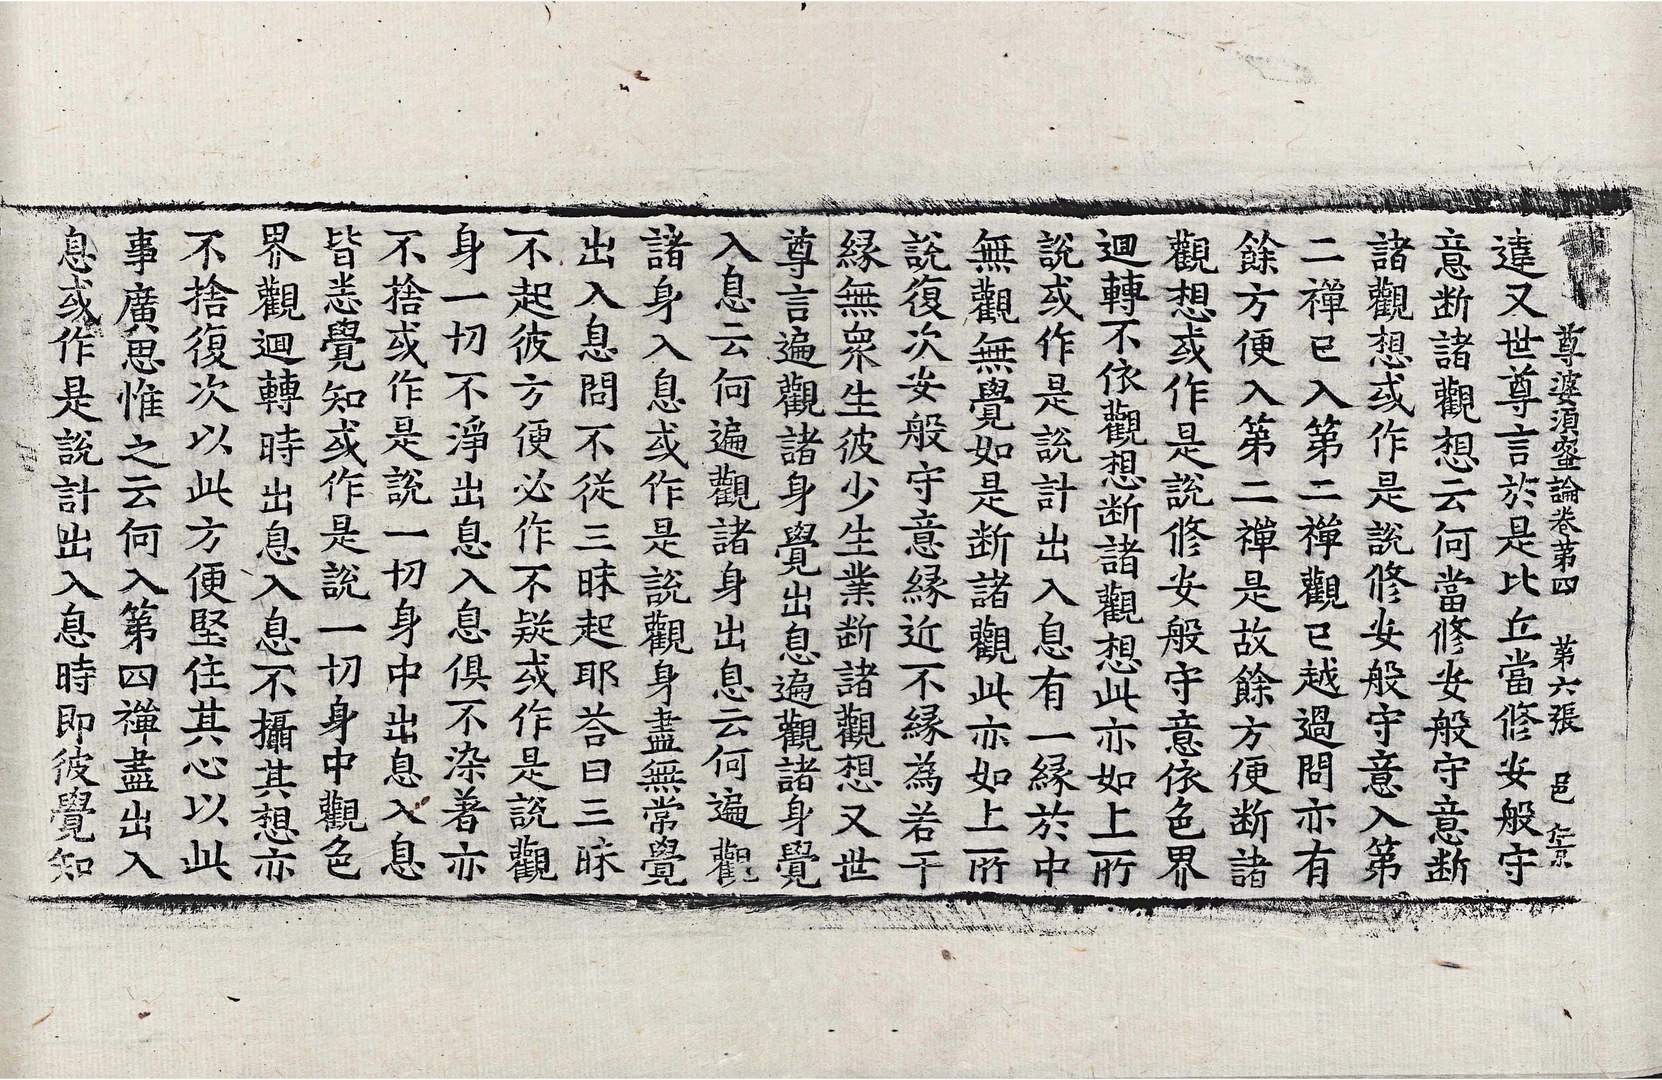 尊婆須蜜論卷第四　第六張　邑
達又世尊言於是比丘當修安般守
意断諸觀想云何當修安般守意断
諸觀想或作是說修安般守意入第
二禪已入第二禪觀已越過問亦有
餘方便入第二禪是故餘方便断諸
觀想或作是說修安般守意依色界
迴轉不依觀想断諸觀想此亦如上所
說或作是說計出入息有一緣於中
無觀無覺如是断諸觀此亦如上所
說復次安般守意緣近不緣為若干
緣無衆生彼少生業断諸觀想又世
尊言遍觀諸身覺出息遍觀諸身覺
入息云何遍觀諸身出息云何遍觀
諸身入息或作是說觀身盡無常覺
出入息問不從三昧起耶荅曰三昧
不起彼方便必作不疑或作是說觀
身一切不淨出息入息俱不染著亦
不捨或作是說一切身中出息入息
皆悉覺知或作是說一切身中觀色
界觀迴轉時出息入息不攝其想亦
不捨復次以此方便堅住其心以此
事廣思惟之云何入第四禪盡出入
息或作是說計出入息時即彼覺知